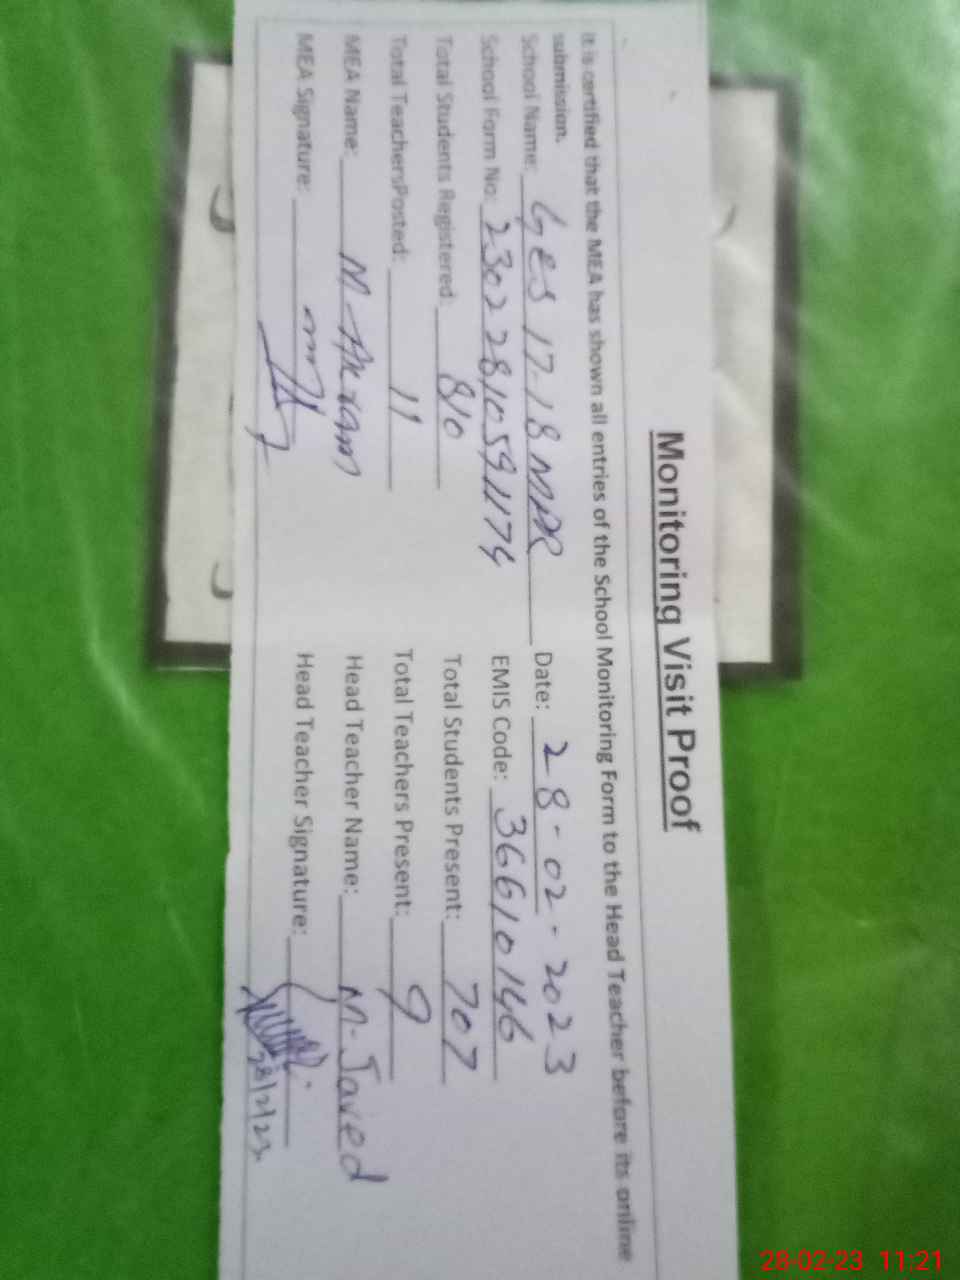 Monitoring Visit Proof
It is certified that the MEA has shown all entries of the School Monitoring Form to the Head Teacher before its online
submission.
School Name: GES 17-18 MPR Date: 28-02-2023
School Form No: 23022810591174 EMIS Code: 36610146
Total Students Registered 810 Total Students Present: 707
Total TeachersPosted: 11 Total Teachers Present: 9
MEA Name: M-Akram Head Teacher Name: M-Javed
MEA Signature: Head Teacher Signature:
28/2/23
28-02-23 11:21